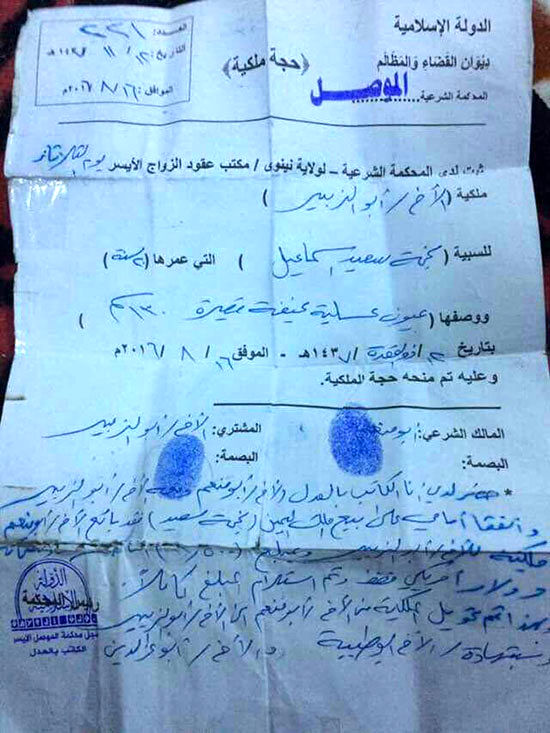 الدولة الإسلامية
ديوان القضاء والمظالم
المحكمة الشرعية الموصل
﴿حجة ملكية﴾
العدد: ٢٣١
التاريخ: ١١ / ١٤٣ هـ
الموافق: ١٦ / ٨ / ٢٠١٦م
ثبت لدى المحكمة الشرعية - لولاية نينوى / مكتب عقود الزواج الأيسر يوم الثلاثاء
ملكية (الأخ / أبو الزبير )
للسبية ( نجمة سعيد اسماعيل ) التي عمرها ( سنة)
ووصفها (عيون عسلية ضعيفة قصيرة ١٣٠ سم )
بتاريخ / ذو القعدة / ١٤٣٧هـ - الموافق ١٦ / ٨ / ٢٠١٦م
وعليه تم منحه حجة الملكية.
المالك الشرعي: أبو منعم
المشتري: الأخ / أبو الزبير
البصمة:
البصمة:
* حضر لدي أنا الكاتب بالعدل الأخ / أبو منعم والأخ / أبو الزبير
واتفقا أمامي على بيع ملك اليمين (نجمة سعيد) فقد بائع الأخ / أبو منعم
ملكيته للأخ / أبو الزبير وبمبلغ
دولار أمريكي فقط وتم استلام المبلغ كاملاً
وبهذا تم تحويل الملكية من الأخ / أبو منعم الى الأخ / أبو الزبير
وبشهادة / الأخ والأخ / أبو عز الدين
الدولة الإسلامية
رئيس المحكمة
سجل محكمة الموصل الأيسر
الكاتب بالعدل